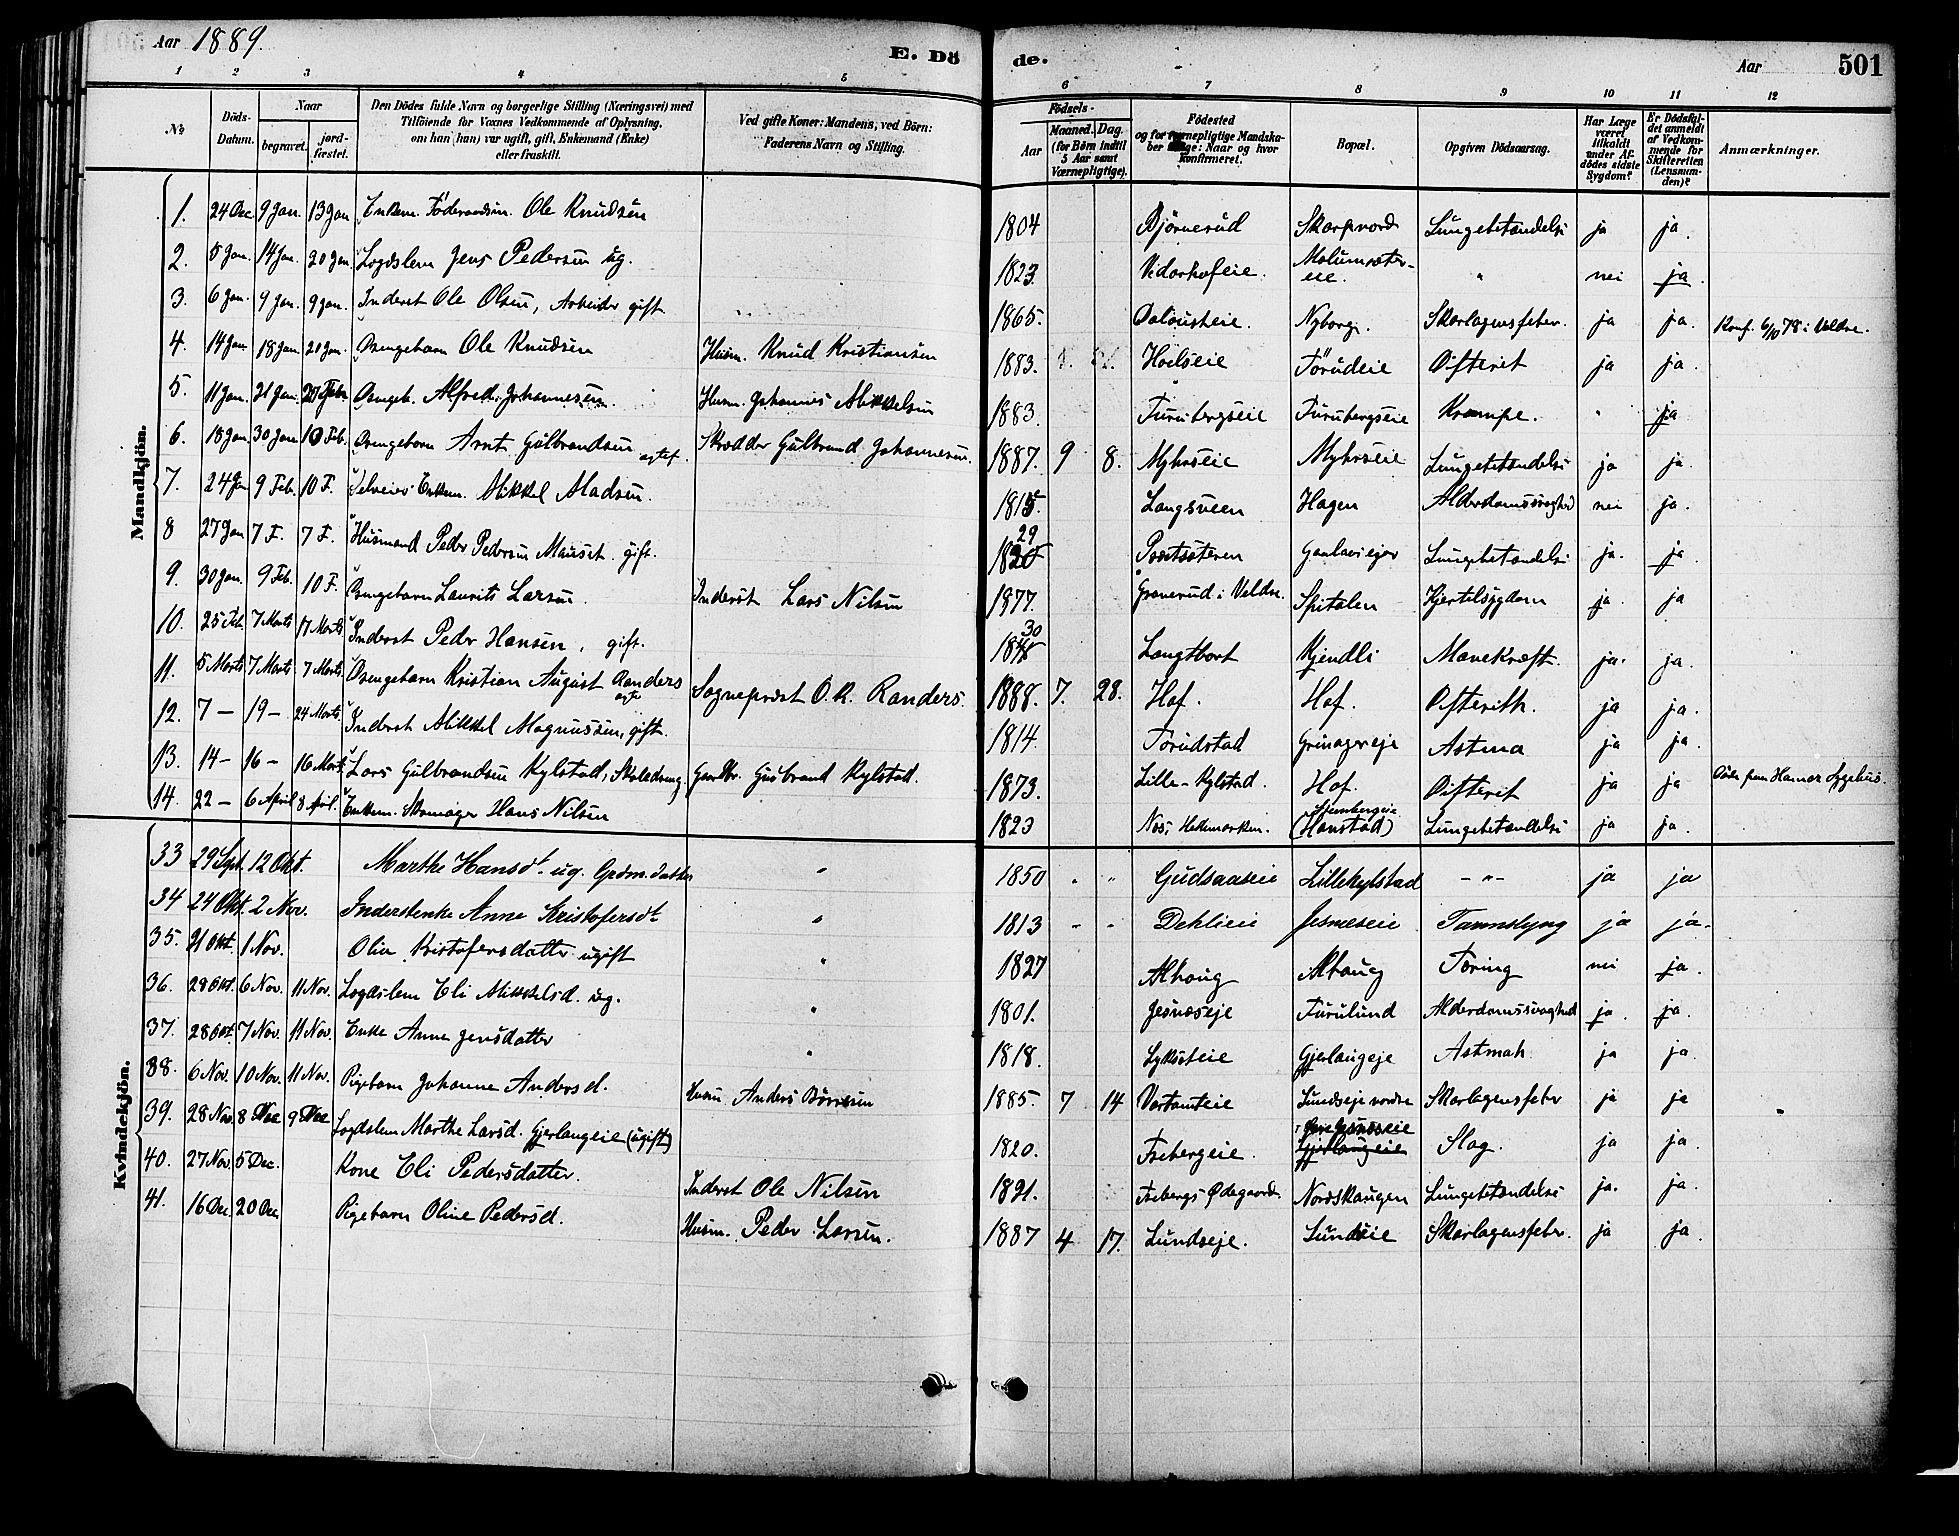 Aar 1889.
E. Dö de.
Aar 501
1 2 3 4 5 6 7 8 9 10 11 12
No
Döds-Datum.
Naar
begravet.
jord-fæstet.
Den Dödes fulde Navn og borgerlige Stilling (Næringsvei) med
Tilföiende for Voxnes Vedkommende af Oplysning,
om han (hun) var ugift, gift, Enkemand (Enke)
eller fraskilt.
Ved gifte Koner: Mandens, ved Börn:
Faderens Navn og Stilling.
Födsels-
Aar
Maaned. Dag.
(for Börn indtil
5 Aar samt
Værnepligtige).
Födested
og for værnepligtige Mandska-
ber tillige: Naar og hvor
konfirmeret.
Bopæl.
Opgiven Dödsaarsag.
Har Læge
været
tilkaldt
under Af-
dödes sidste
Sygdom?
Er Dödsfal-
det anmeldt
af Vedkom-
mende for
Skifteretten
(Lensman-
den)?
Anmærkninger.
Mandkjön.
1. 24 Dec 9 Jan. 13 Jan Enkem. Föderaadsm. Ole Knudsen 1804 Björnerud Skarpnord Lungebetændelse ja ja.
2. 5 Jan. 14 Jan. 20 Jan. Lægdslem Jens Pedersen ug. 1823 Vidarhofeie. Malumsæter-eie. " nei ja.
3. 6 Jan. 9 Jan. 9 Jan. Inderst Ole Olsen, Arbeider gift 1865. Nyborg. Skarlagensfeber. ja ja. Konf. 6/10 78 i Veldre.
4. 14 Jan 18 Jan. 20 Jan. Drengebarn Ole Knudsen Husm. Knud Kristiansen 1883. Hoelseie Törüdeie Difterit ja ja.
5. 11 Jan. 21 Jan. Febr. Drengeb. Alfred Johannesen. Husm. Johannes Mikkelsen 1883. Furubergseie Furubergseie Krampe. " ja
6. 18 Jan. 30 Jan. 10 Feb. Drengebarn Arnt Gulbrandsen ægtef. Skrædder Gulbrand Johannesen. 1887. 9 8. Myhrseie Myhrseie Lungebetændelse ja ja.
7. 24 Jan 9 Feb. 10 F. Selveier Enkem. Mikkel Madsen. 1815 Langsveen Hagen Alderdomssvaghed nei ja.
8 27 Jan 7 F. 7 F. Husmand Peder Pedersen Mauset. gift. 1820 29 Prestsæteren Lungebetændelse ja. ja
9. 30 Jan. 9 Feb. 10 F. Drengebarn Laurits Larsen Inderst Lars Nilsen 1877. Granerud i Veldre. Spitalen Kjertelsygdom ja. ja
10. 25 Feb. 7 Marts 17 Marts Inderst Peder Hansen, gift. 30 Langtbort Kjendli Mavekræft. ja. ja.
11. 5 Marts 7 Marts 7 Marts. Drengebarn Kristian August Randers ægte Sogneprest O. K. Randers. 1888. 7. 28. Hof. Hof. Difterith. ja ja.
12. 7 – 19 – 24 Marts. Inderst Mikkel Magnussen, gift. 1814. Torudstad Grönagereje Astma ja ja.
13. 14 – 16 – 16 Marts Lars Gulbrandsen Kylstad, Skoledreng Gaardbr. Gulbrand Kylstad. 1873. Lille-Kylstad. Hof. Difterit ja ja Döde paa Hamar Sygehus.
14. 22 – 6 April 8 April. Enkem. Skomager Hans Nilsen 1823 Næs, Hedemarken. Stenbergeie (Hanstad) Lungebetændelse ja ja.
Kvindekjön.
33 29 Sept. 12 Okt. Marthe Hansdt. ug. Grdm. datter " 1850 " " Gudsaaseie Lillekylstad –"– ja ja
34 24 Okt. 2 Nov. Inderstenke Anne Kristofersdt " 1813 " " Dehlieie Jesnæseie ja ja.
35. 21 Okt. 1 Nov. Oline Kristofersdatter ugift " 1827 Alhaug Alhaug Tæring nei ja.
36. 28 Okt. 6 Nov. 11 Nov. Lægdslem Eli Mikkelsd. ug. " 1801. Jesnæseje Furulund Alderdomssvaghed ja. ja.
37. 28 Okt. 7 Nov. 11 Nov. Enke Anne Jensdatter " 1818. Lyksteie Gjerlaugeje Astmah ja ja.
38. 6 Nov. 10 Nov. 11 Nov. Pigebarn Johanne Andersd. Husm. Anders Börresen 1885. 7 14 Vartumeie Lundseje nordre Skarlagensfeber ja ja
39. 28 Nov. 8 Dec 9 Dec Lægdslem Marthe Larsd. Gjerlaugeie (ugift) 1820. Freberg eie. Jesnæseie Gjerlaugeie Slag. ja ja.
40. 27 Nov. 5 Dec. Kone Eli Pedersdatter. Inderst Ole Nilsen 1821. Frebergs Ødegaard Nordskaugen Lungebetændelse ja. ja.
41. 16 Dec. 20 Dec Pigebarn Oline Pedersd. Husm. Peder Larsen. 1887 4 17. Lundseje. Lundseie Skarlagensfeber. ja ja.